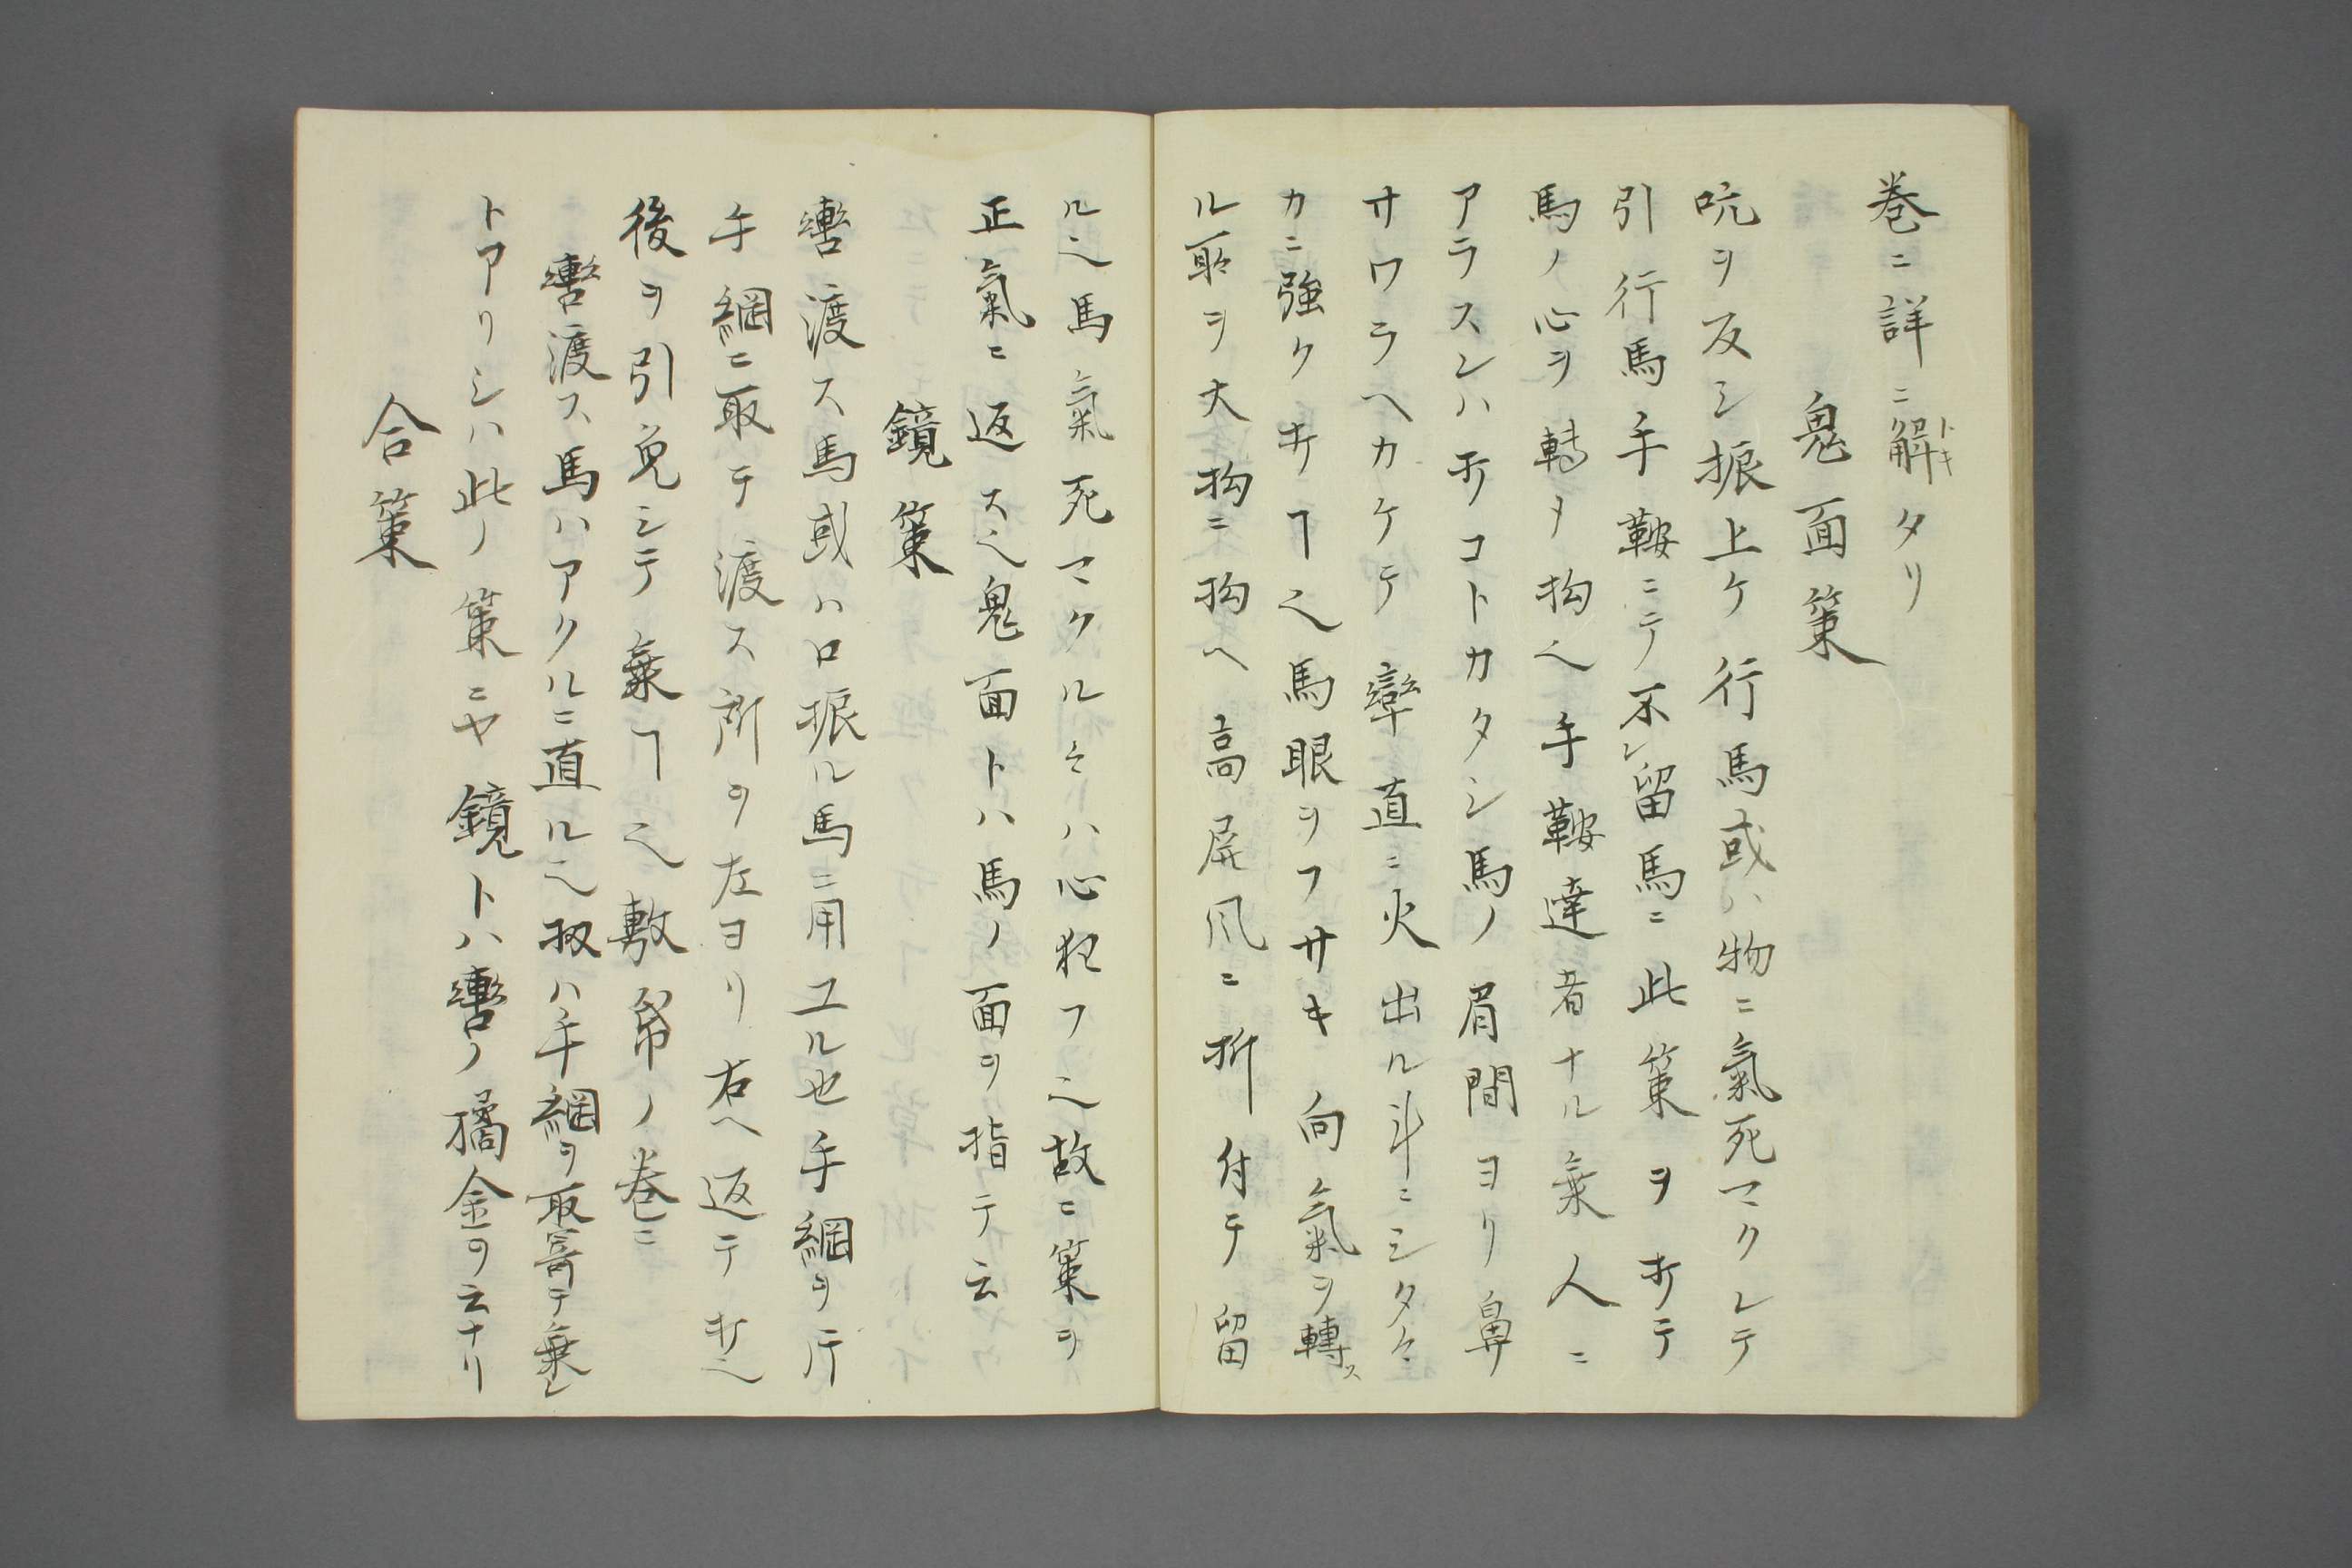 巻ニ詳ニ解トキタリ
鬼面策
吭ヲ反シ振上ケ行馬或ハ物ニ氣死マクレテ
引行馬手鞍ニテ不レ留馬ニ此策ヲ打テ
馬ノ心ヲ轉メ拘ヘ手鞍達者ナル乗人ニ
アラスンハ打コトカタシ馬ノ眉間ヨリ鼻
サワラヘカケテ直ニ火出ル斗ニシタヽ
カニ強ク打ヿ也馬眼ヲフサキ向氣ヲ轉ス
ル所ヲ大拘ニ拘ヘ高屏風ニ折付テ留
ル也馬氣死マクルヽトハ心狂フ也故ニ策ヲ
正氣ニ返ス也鬼面トハ馬ノ面ヲ指テ云
鏡策
轡渡ス馬或ハ口振ル馬ニ用ユル也手綱ヲ片
手綱ニ取テ渡ス所ヲ左ヨリ右ヘ返テ打也
後ヲ引免シテ乗ヿ也敷帋ノ巻ニ
轡渡ス馬ハアクルニ直ル也扨ハ手綱ヲ取寄テ乗レ
トアリシハ此ノ策ニヤ鏡トハ轡ノ橘金ヲ云ナリ
合策